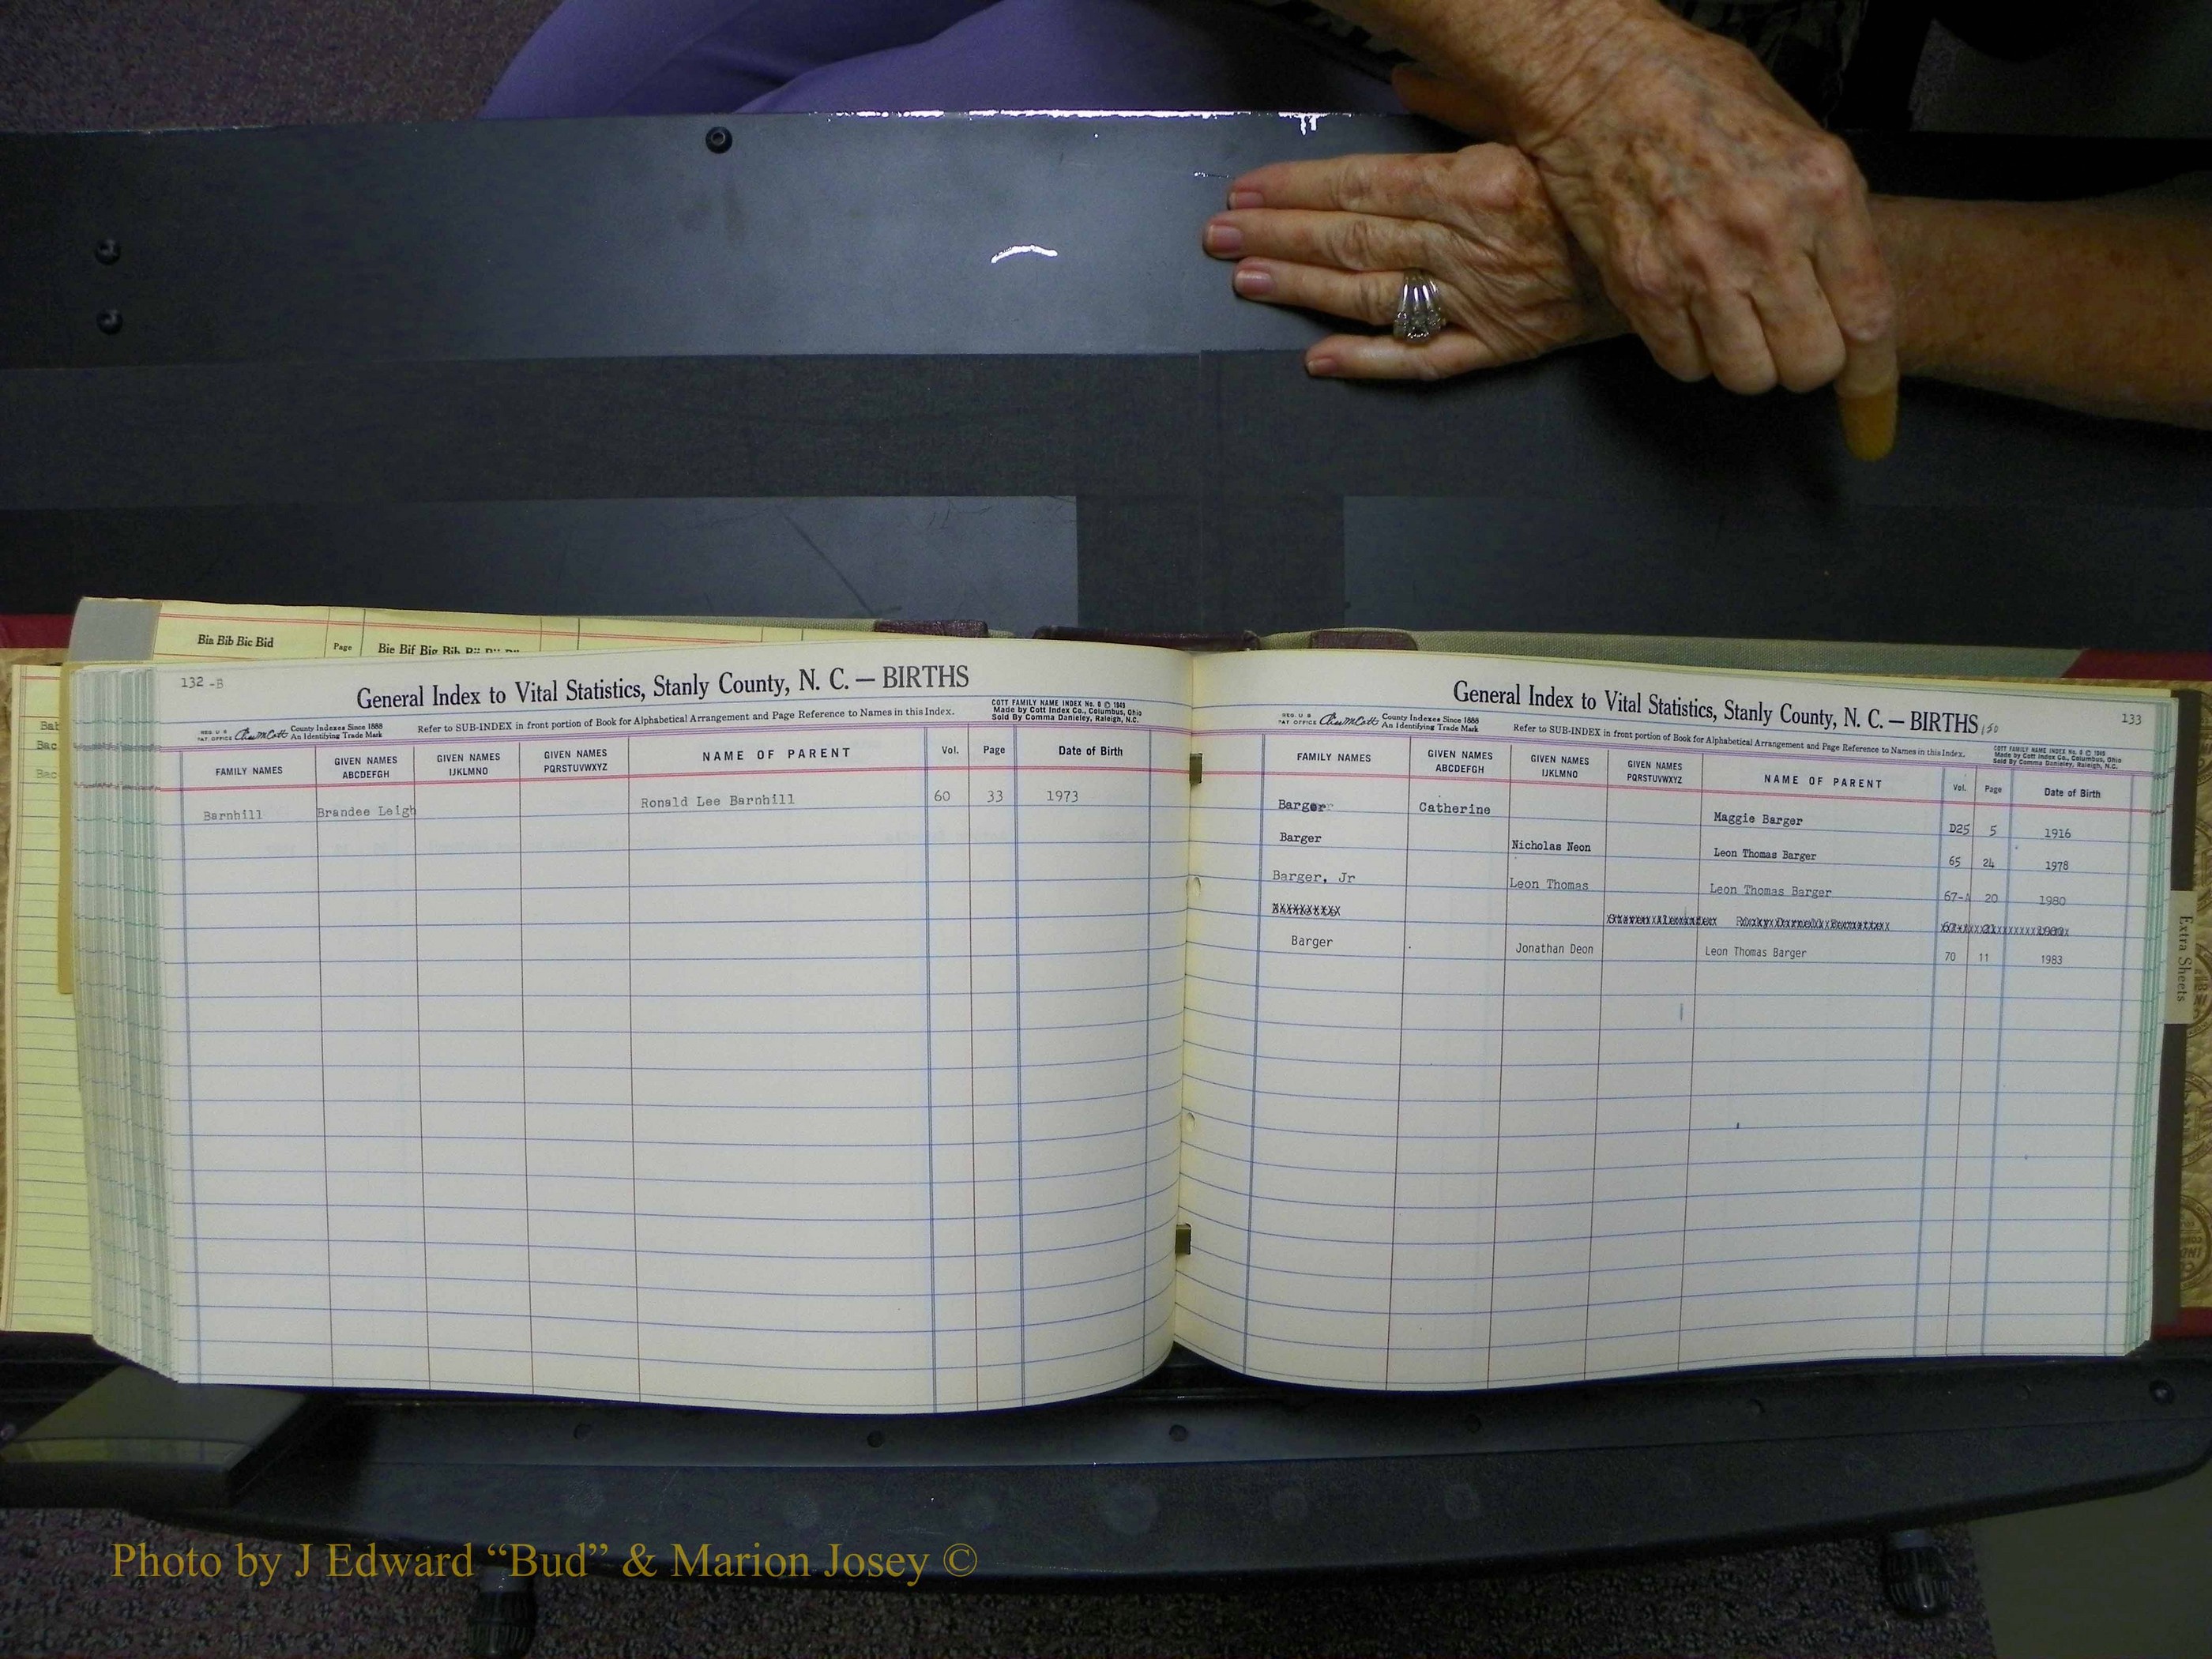 Bia Bib Bic Bid Page Bie Bif Big Bih
Bab
Bac
Bac
132 -B
General Index to Vital Statistics, Stanly County, N. C. — BIRTHS
REG. U S PAT. OFFICE County Indexes Since 1888 An Identifying Trade Mark
Refer to SUB-INDEX in front portion of Book for Alphabetical Arrangement and Page Reference to Names in this Index.
COTT FAMILY NAME INDEX No. 8 © 1949
Made by Cott Index Co., Columbus, Ohio
Sold By Comma Danieley, Raleigh, N.C.
FAMILY NAMES GIVEN NAMES ABCDEFGH GIVEN NAMES IJKLMNO GIVEN NAMES PQRSTUVWXYZ NAME OF PARENT Vol. Page Date of Birth
Barnhill Brandee Leigh Ronald Lee Barnhill 60 33 1973
General Index to Vital Statistics, Stanly County, N. C. — BIRTHS
133
REG. U S PAT. OFFICE County Indexes Since 1888 An Identifying Trade Mark
Refer to SUB-INDEX in front portion of Book for Alphabetical Arrangement and Page Reference to Names in this Index.
COTT FAMILY NAME INDEX No. 8 © 1949
Made by Cott Index Co., Columbus, Ohio
Sold By Comma Danieley, Raleigh, N.C.
FAMILY NAMES GIVEN NAMES ABCDEFGH GIVEN NAMES IJKLMNO GIVEN NAMES PQRSTUVWXYZ NAME OF PARENT Vol. Page Date of Birth
Barger Catherine Maggie Barger D25 5 1916
Barger Nicholas Neon Leon Thomas Barger 65 24 1978
Barger, Jr Leon Thomas Leon Thomas Barger 67-A 20 1980
Barger Jonathan Deon Leon Thomas Barger 70 11 1983
Extra Sheets
Photo by J Edward “Bud” & Marion Josey ©